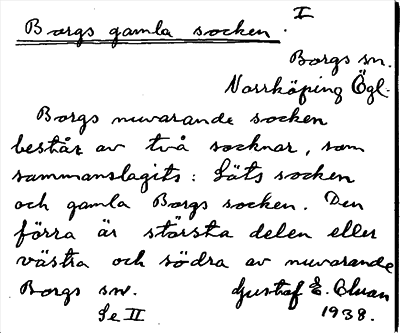 Borgs gamla socken. I
Borgs sn.
Norrköping Ögl.
Borgs nuvarande socken
består av två socknar, som
sammanslagits: Löts socken
och gamla Borgs socken. Den
förra är största delen eller
västra och södra av nuvarande
Borgs sn. Gustaf E.
Se II 1938.